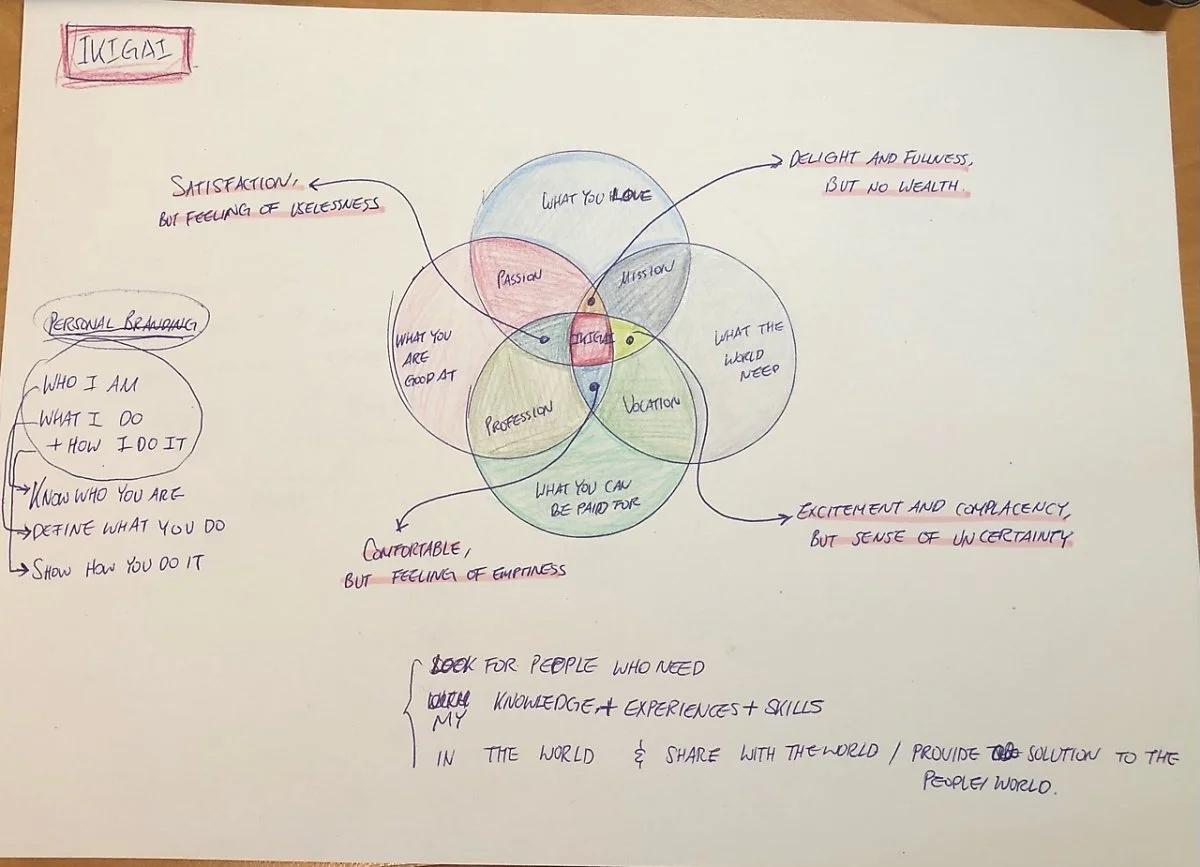 IKIGAI
SATISFACTION,
BUT FEELING OF USELESSNESS
DELIGHT AND FULLNESS,
BUT NO WEALTH.
WHAT YOU LOVE
PASSION
MISSION
WHAT YOU
ARE
GOOD AT
IKIGAI
WHAT THE
WORLD
NEED
PROFESSION
VOCATION
WHAT YOU CAN
BE PAID FOR
CONFORTABLE,
BUT FEELING OF EMPTINESS
EXCITEMENT AND COMPLACENCY,
BUT SENSE OF UNCERTAINTY
PERSONAL BRANDING
WHO I AM
WHAT I DO
+ HOW I DO IT
KNOW WHO YOU ARE
DEFINE WHAT YOU DO
SHOW HOW YOU DO IT
LOOK FOR PEOPLE WHO NEED
MY KNOWLEDGE + EXPERIENCES + SKILLS
IN THE WORLD & SHARE WITH THE WORLD / PROVIDE SOLUTION TO THE
PEOPLE/WORLD.